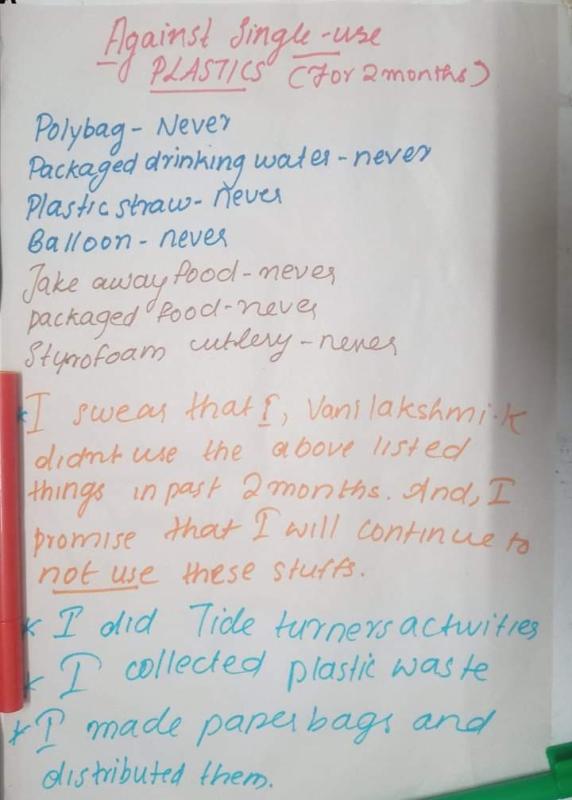 Against Single-use
PLASTICS (For 2 months)
Polybag - Never
Packaged drinking water - never
Plastic straw - Never
Balloon - never
Take away food - never
packaged food - never
Styrofoam cutlery - never
* I swear that I, Vani lakshmi.K
didnt use the above listed
things in past 2 months. And, I
promise that I will continue to
not use these stuffs.
* I did Tide turners activities
* I collected plastic waste
* I made paper bags and
distributed them.